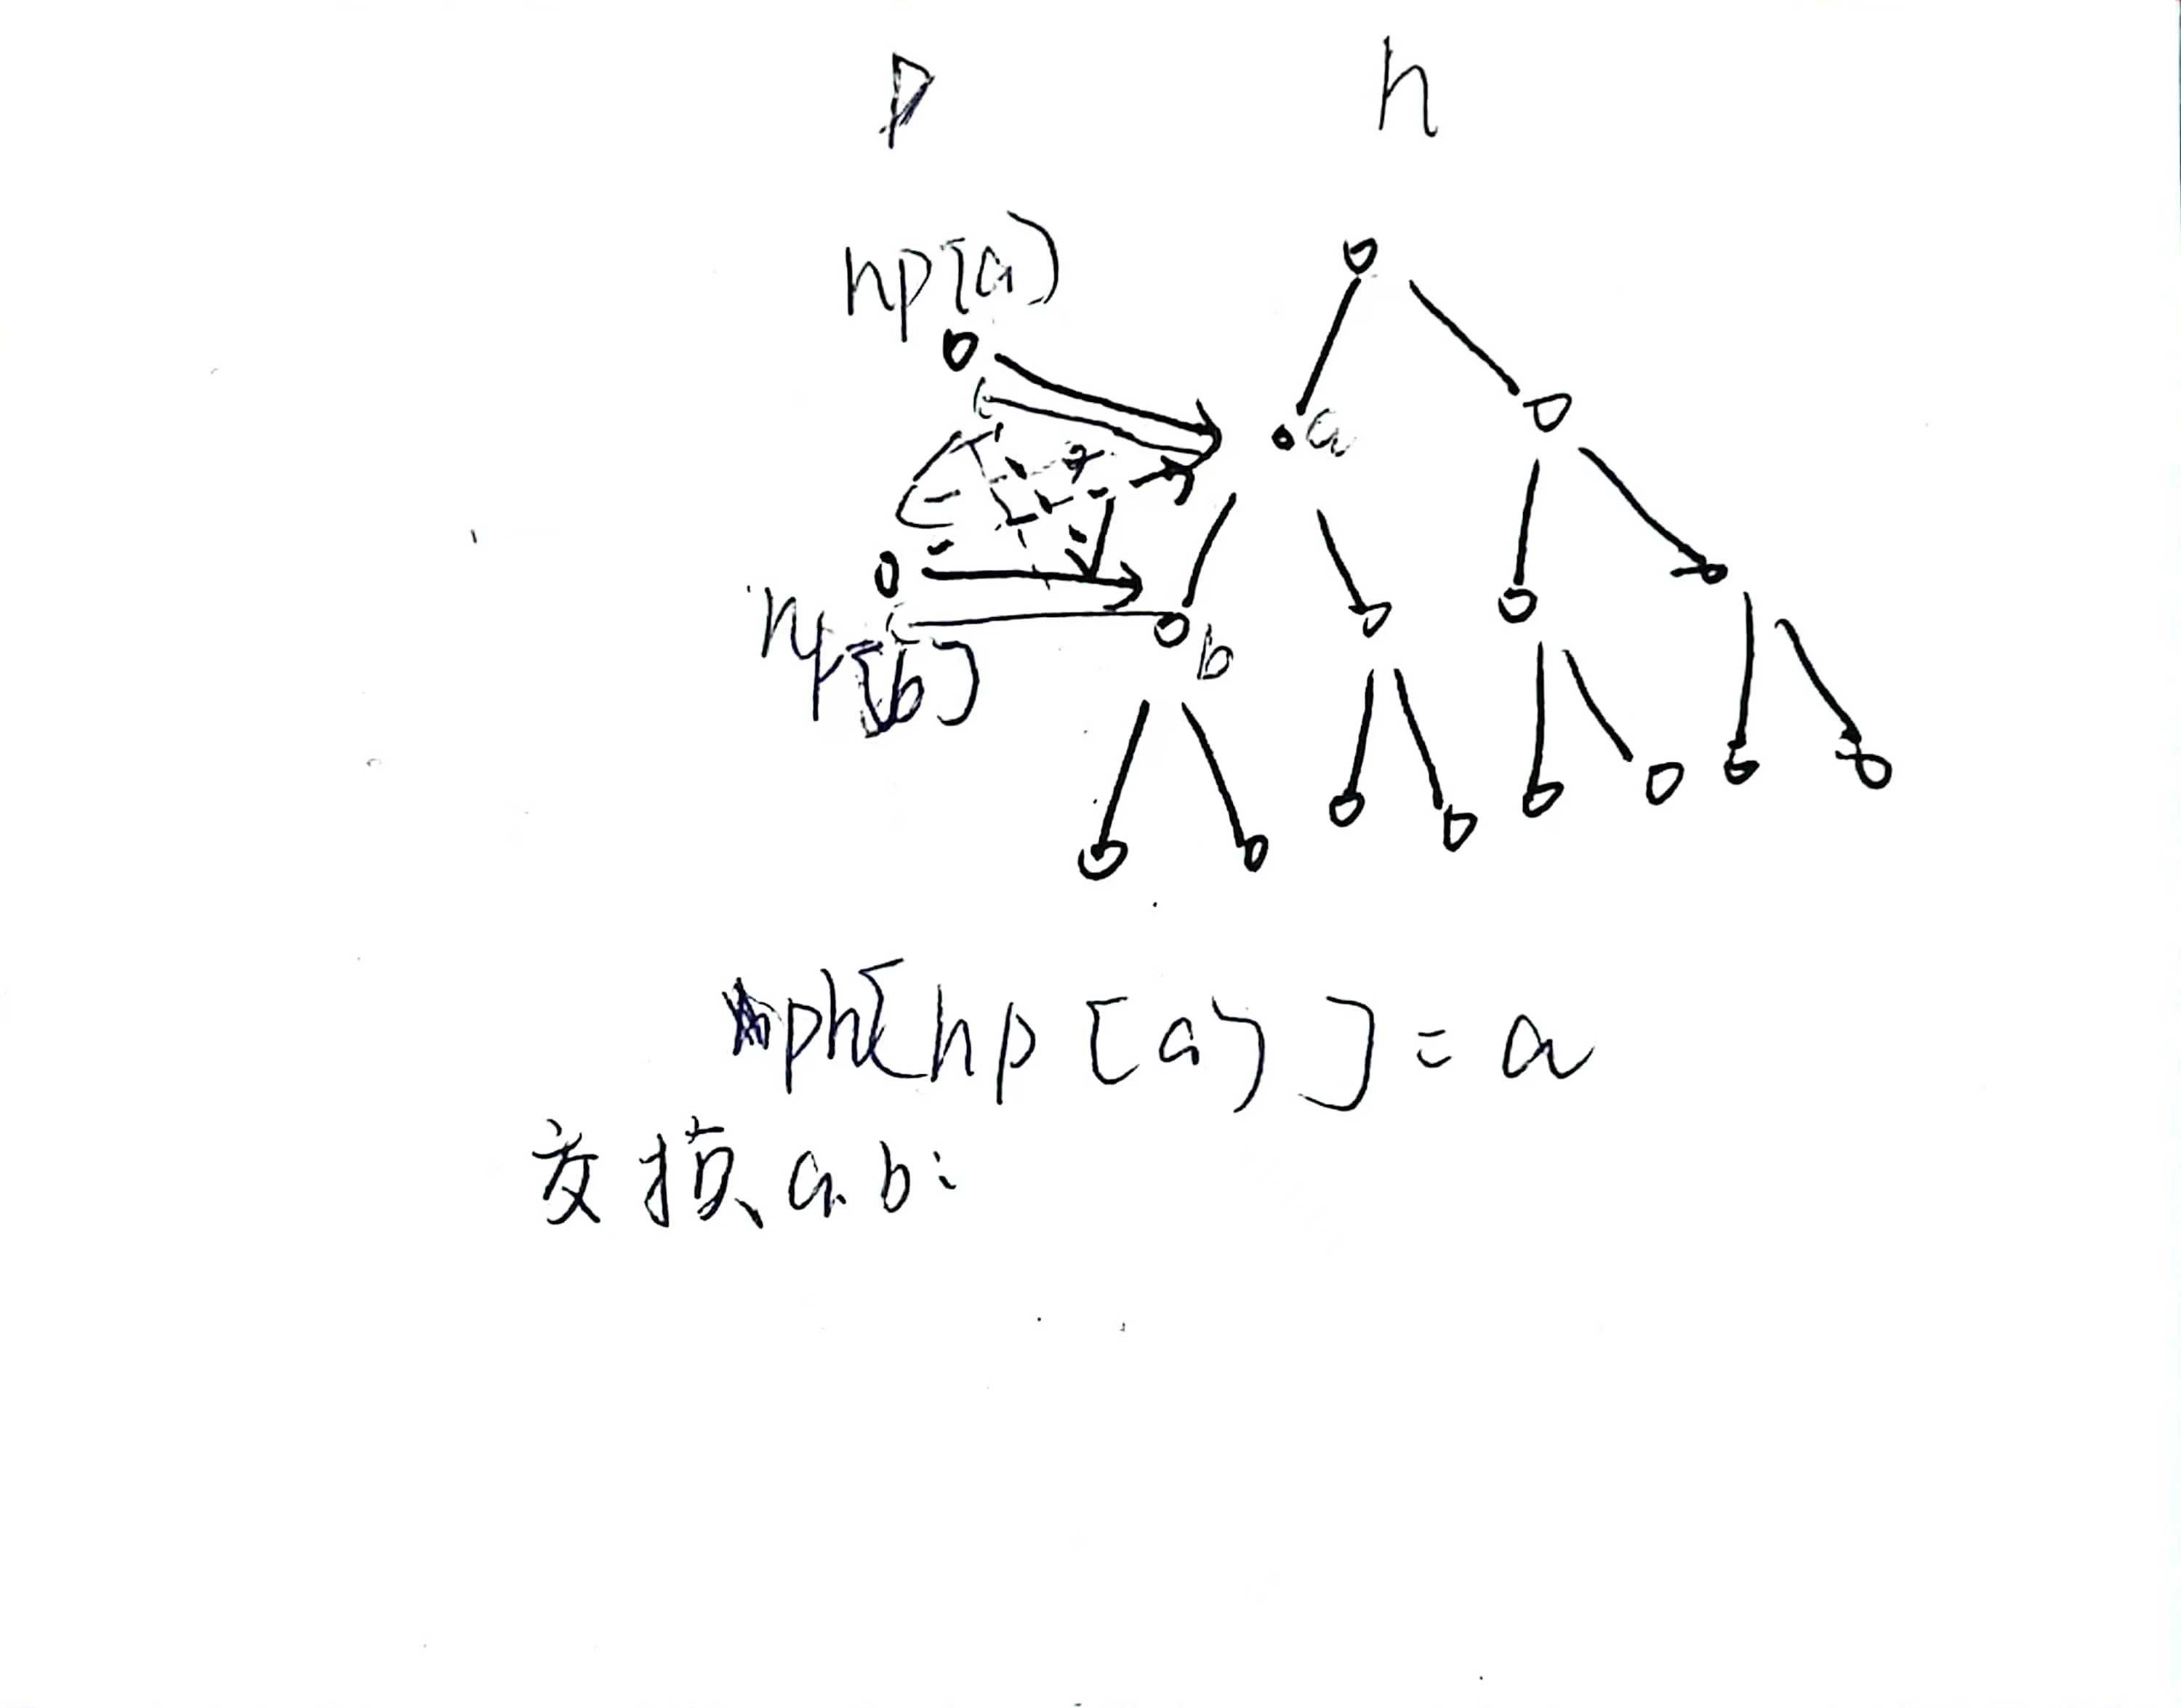 p h
hp[a)
a
hp[b]
b
ph[hp[a)]=a
交换a.b: